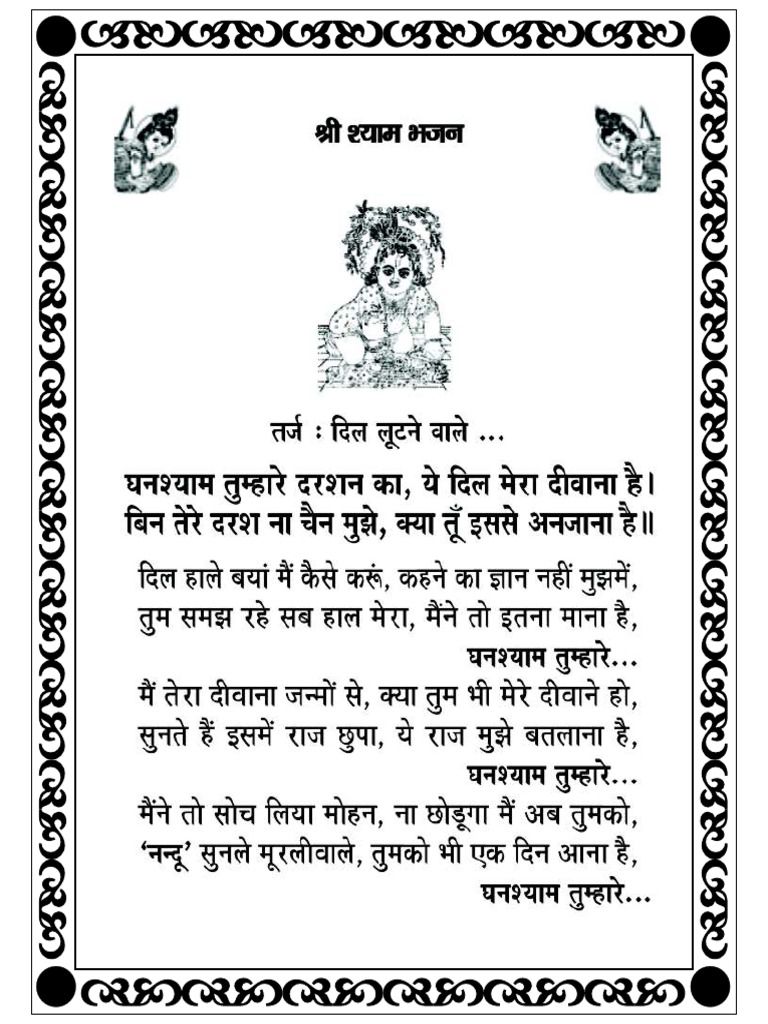 श्री श्याम भजन
तर्ज : दिल लूटने वाले ...
घनश्याम तुम्हारे दरशन का, ये दिल मेरा दीवाना है।
बिन तेरे दरश ना चैन मुझे, क्या तूँ इससे अनजाना है॥
दिल हाले बयां मैं कैसे करूं, कहने का ज्ञान नहीं मुझमें,
तुम समझ रहे सब हाल मेरा, मैंने तो इतना माना है,
घनश्याम तुम्हारे...
मैं तेरा दीवाना जन्मों से, क्या तुम भी मेरे दीवाने हो,
सुनते हैं इसमें राज छुपा, ये राज मुझे बतलाना है,
घनश्याम तुम्हारे...
मैंने तो सोच लिया मोहन, ना छोडूगा मैं अब तुमको,
‘नन्दू’ सुनले मूरलीवाले, तुमको भी एक दिन आना है,
घनश्याम तुम्हारे...